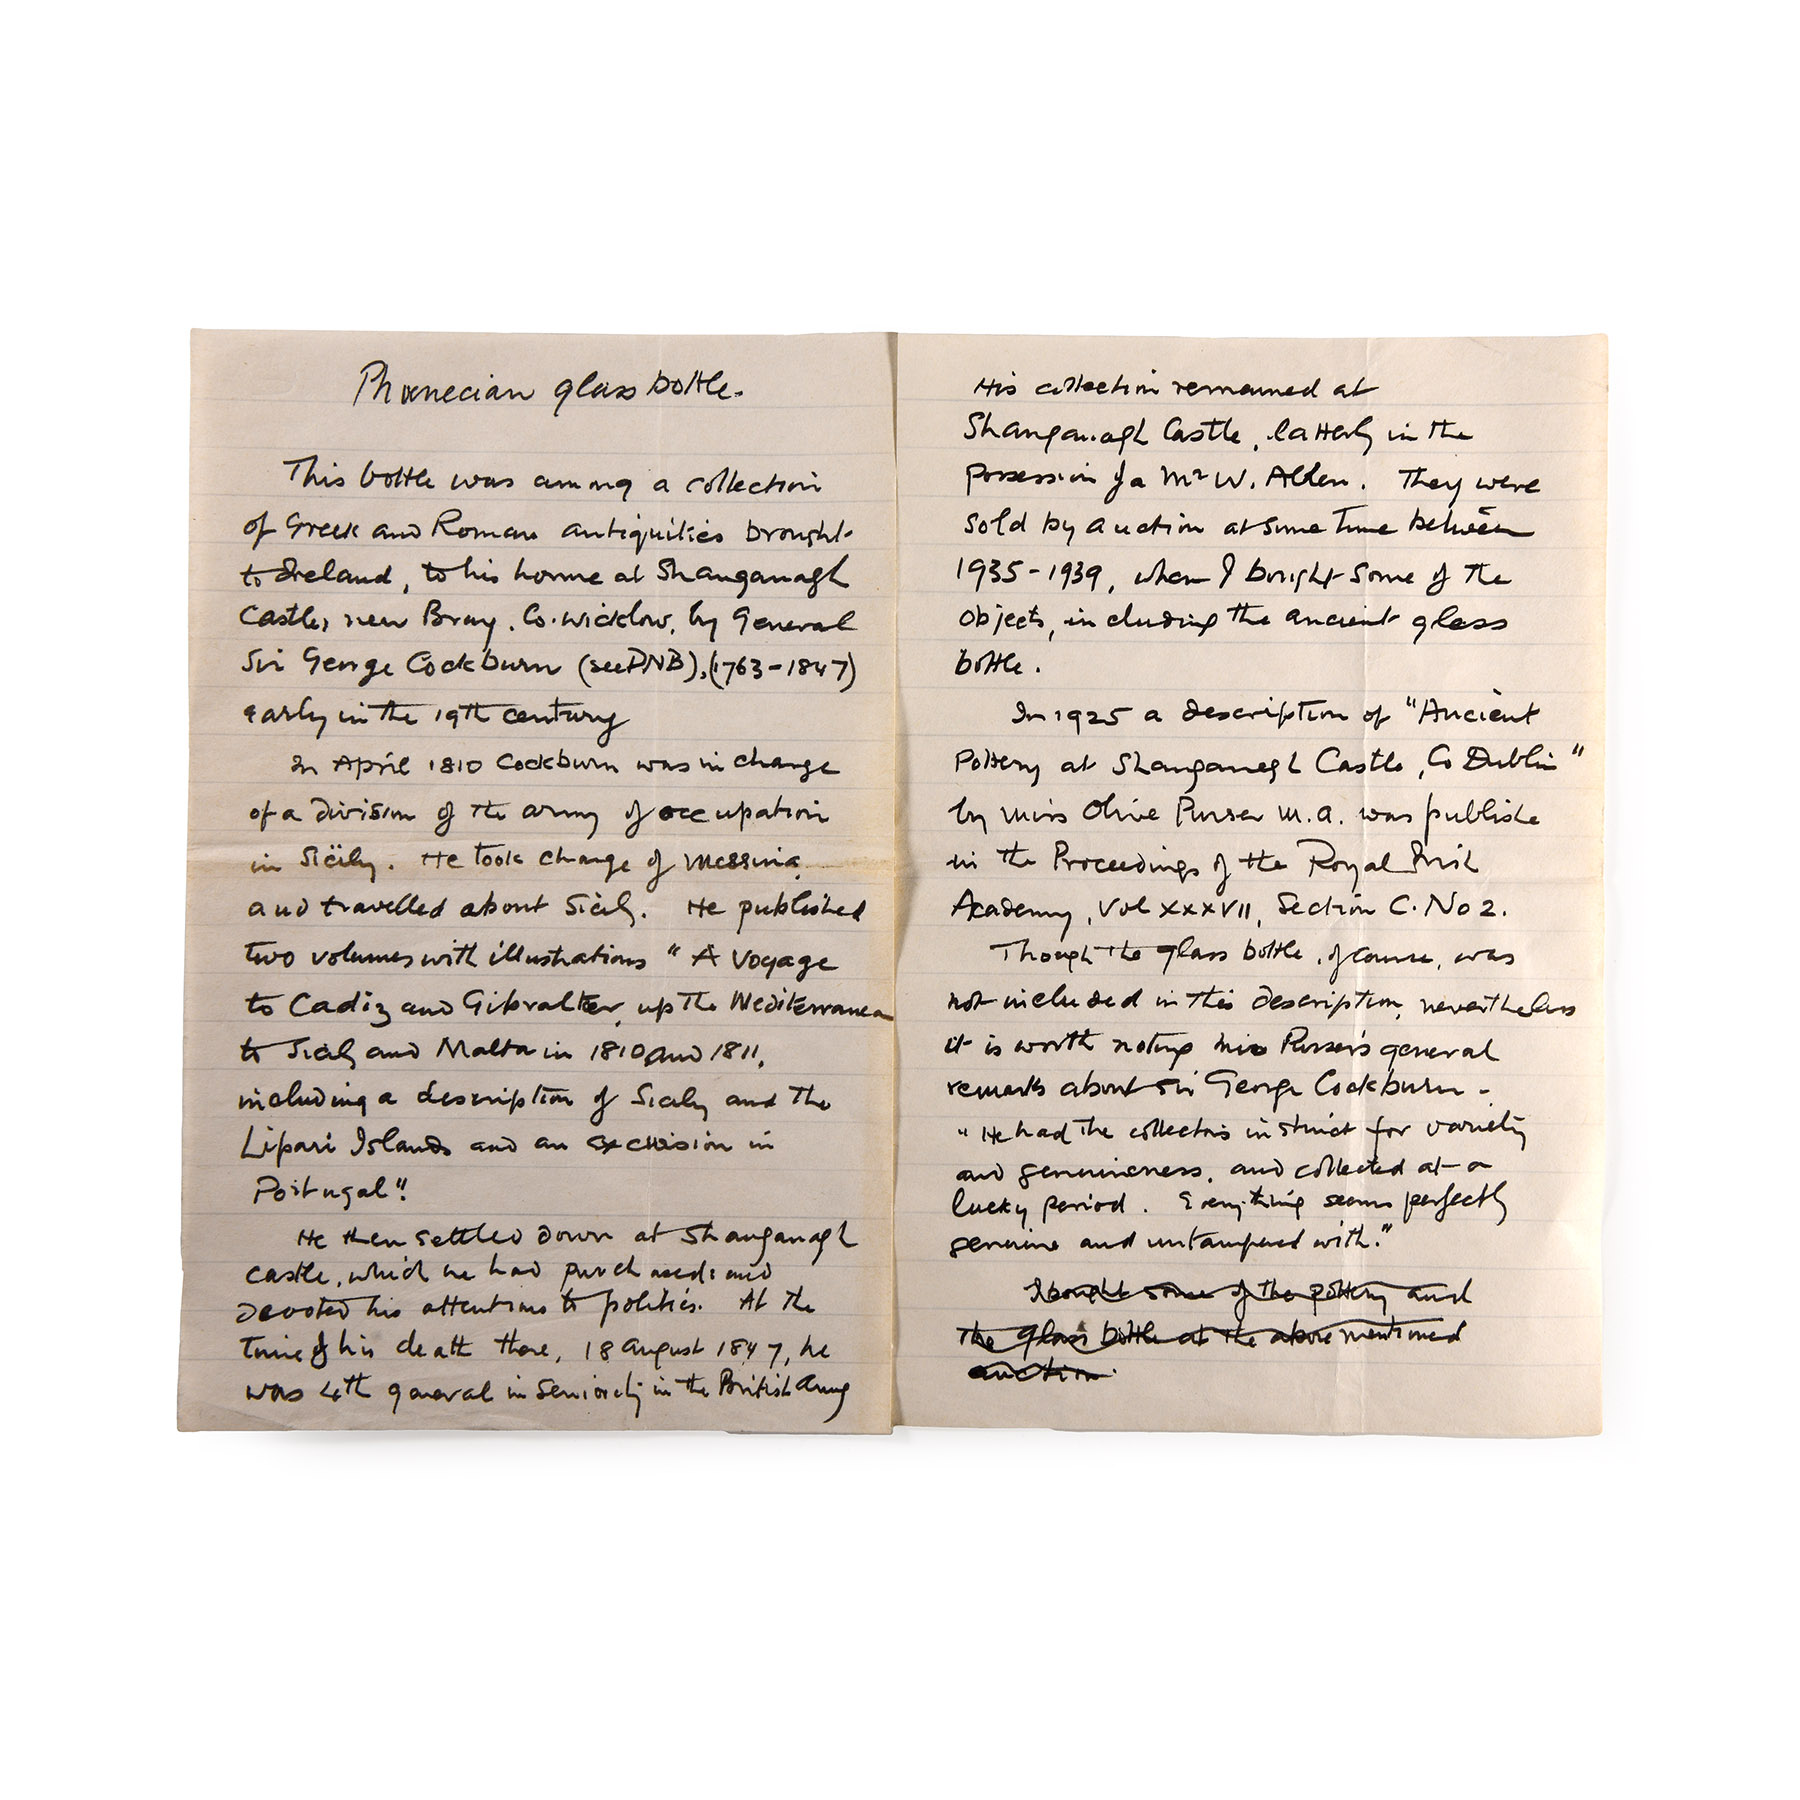 Phoenecian glass bottle.
This bottle was among a collection
of Greek and Roman antiquities brought
to Ireland, to his home at Shanganagh
Castle, near Bray, Co. Wicklow, by General
Sir George Cockburn (see DNB), (1763-1847)
early in the 19th century
In April 1810 Cockburn was in charge
of a division of the army of occupation
in Sicily. He took charge of Messina,
and travelled about Sicily. He published
two volumes with illustrations "A Voyage
to Cadiz and Gibralter, up the Mediterranean
to Sicily and Malta in 1810 and 1811,
including a description of Sicily and the
Lipari Islands and an excursion in
Portugal".
He then settled down at Shanganagh
Castle, which he had purchased, and
devoted his attentions to politics. At the
time of his death there, 18 August 1847, he
was 4th general in seniority in the British Army
His collection remained at
Shanganagh Castle, latterly in the
possession of a Mr W. Alden. They were
sold by auction at some time between
1935-1939, when I bought some of the
objects, including the ancient glass
bottle.
In 1925 a description of "Ancient
Pottery at Shanganagh Castle, Co Dublin"
by Miss Olive Purser M.A. was publishe
in the Proceedings of the Royal Irish
Academy, Vol XXXVII, Section C. No 2.
Though the glass bottle, of course, was
not included in this description, nevertheless
it is worth noting Miss Purser's general
remarks about Sir George Cockburn -
"He had the collectors instinct for variety
and genuineness, and collected at a
lucky period. Everything seems perfectly
genuine and untampered with."
I bought some of the pottery and
the glass bottle at the above mentioned
auction.